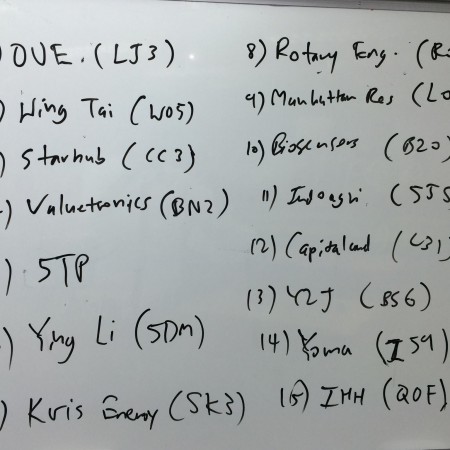 ) OUE. (LJ3)
) Wing Tai (W05)
) Starhub (CC3)
) Valuetronics (BN2)
) STP
) Ying Li (5DM)
) Kris Energy (SK3)
8) Rotary Eng. (R
9) Manhattan Res (L0
10) Biosensors (B20)
11) Indoagri (5JS
12) Capitaland (C31)
13) YZJ (BS6)
14) Yoma (I59)
15) IHH (Q0F)